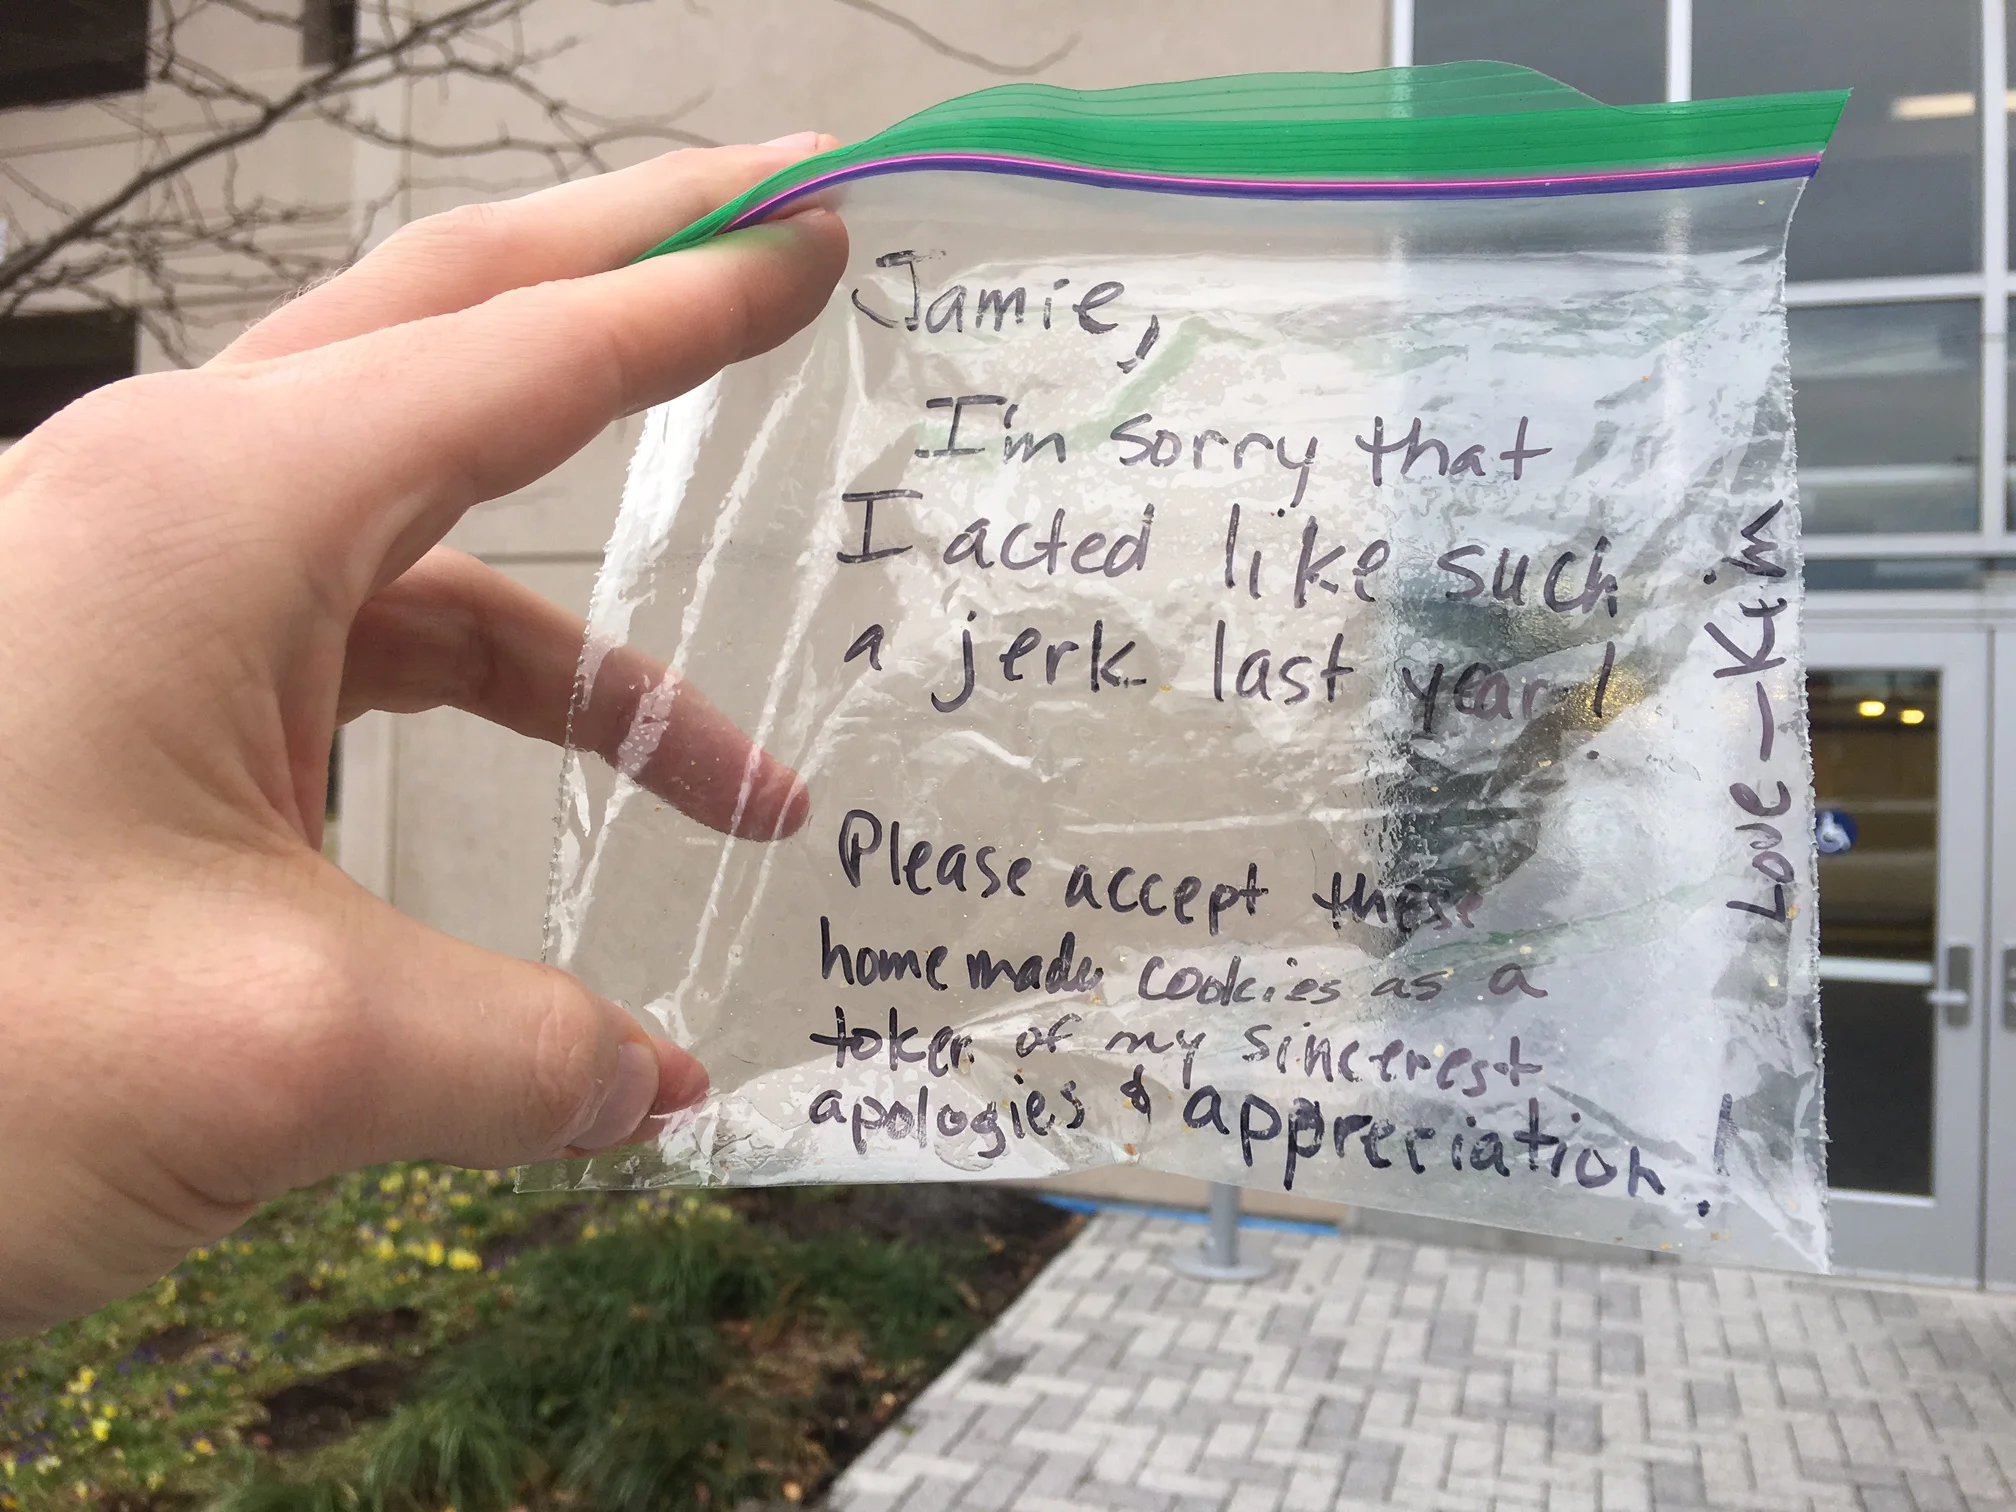 Jamie,
I'm sorry that
I acted like such
a jerk last year!
Please accept these
homemade cookies as a
token of my sincerest
apologies & appreciation!
Love - Kim